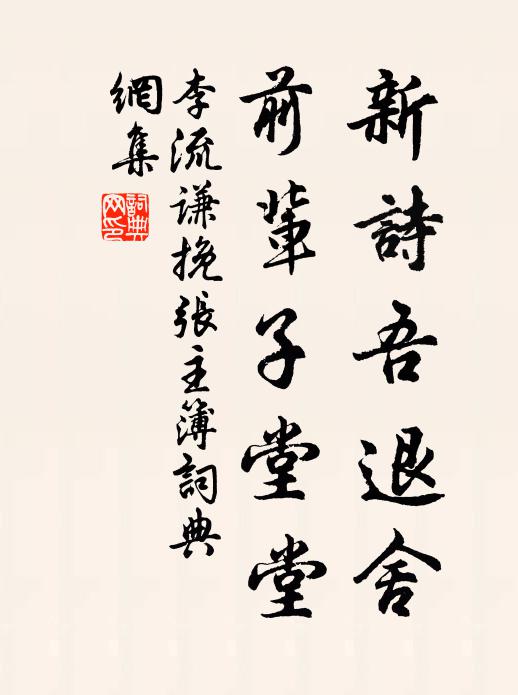 新詩吾退舍
前輩子堂堂
李流谦挽張主簿詞典
網集
詞典
网印